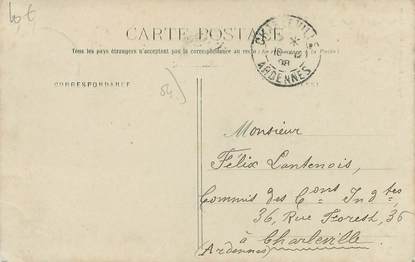 10 €
CARTE POSTALE
Tous les pays étrangers n'acceptent pas la correspondance au recto
CORRESPONDANCE
CHARLEVILLE
08
ARDENNES
Monsieur
Félix Lantenois,
Commis des Cons Indtes
36, Rue Forest, 36
à Charleville.
Ardennes